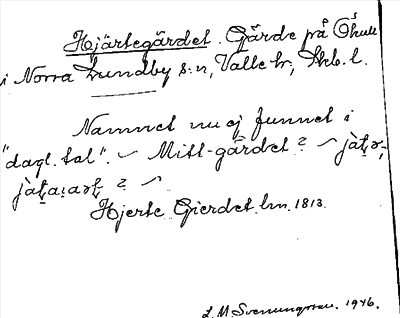 Hjärtegärdet. Gärde på Öhult
i Norra Lundby s:n, Valle hr., Skb. l.
Namnet nu ej funnet i
"dagl. tal". ~ Mitt-gärdet? ~
?
Hjerte Gierdet hm. 1813.
L. M. Svenungsson. 1946.